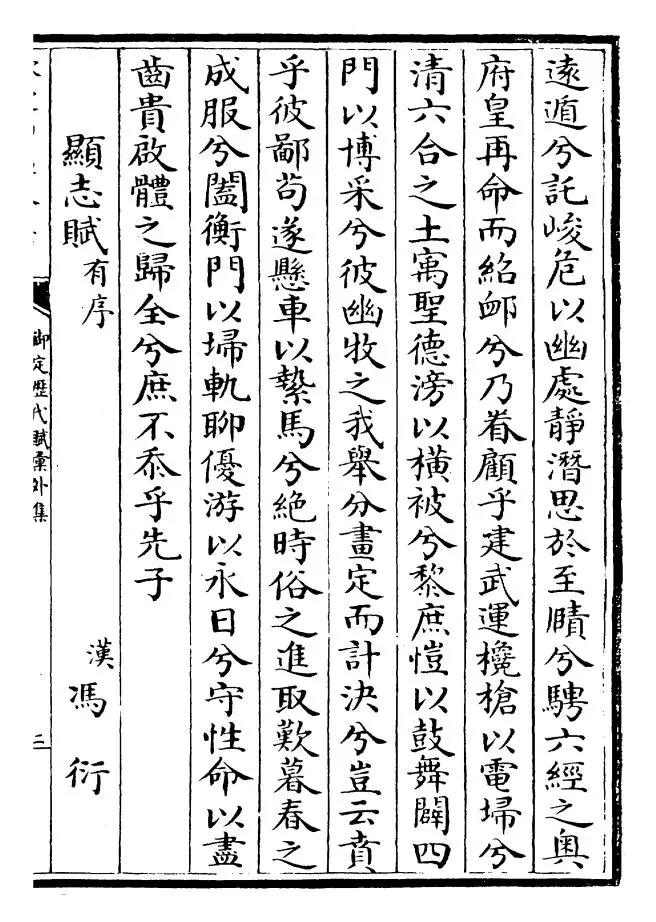 遠遁兮託峻危以幽處靜潛思於至賾兮騁六經之奧
府皇再命而紹卹兮乃眷顧乎建武運欃槍以電埽兮
清六合之土宇聖德滂以橫被兮黎庶愷以鼓舞闢四
門以博采兮彼幽牧之我舉分畫定而計決兮豈云賁
乎彼鄙苟遂懸車以縶馬兮絕時俗之進取歎暮春之
成服兮闔衡門以埽軌聊優游以永日兮守性命以盡
齒貴啟體之歸全兮庶不忝乎先子
顯志賦有序 漢馮衍
御定歴代賦彙外集 二